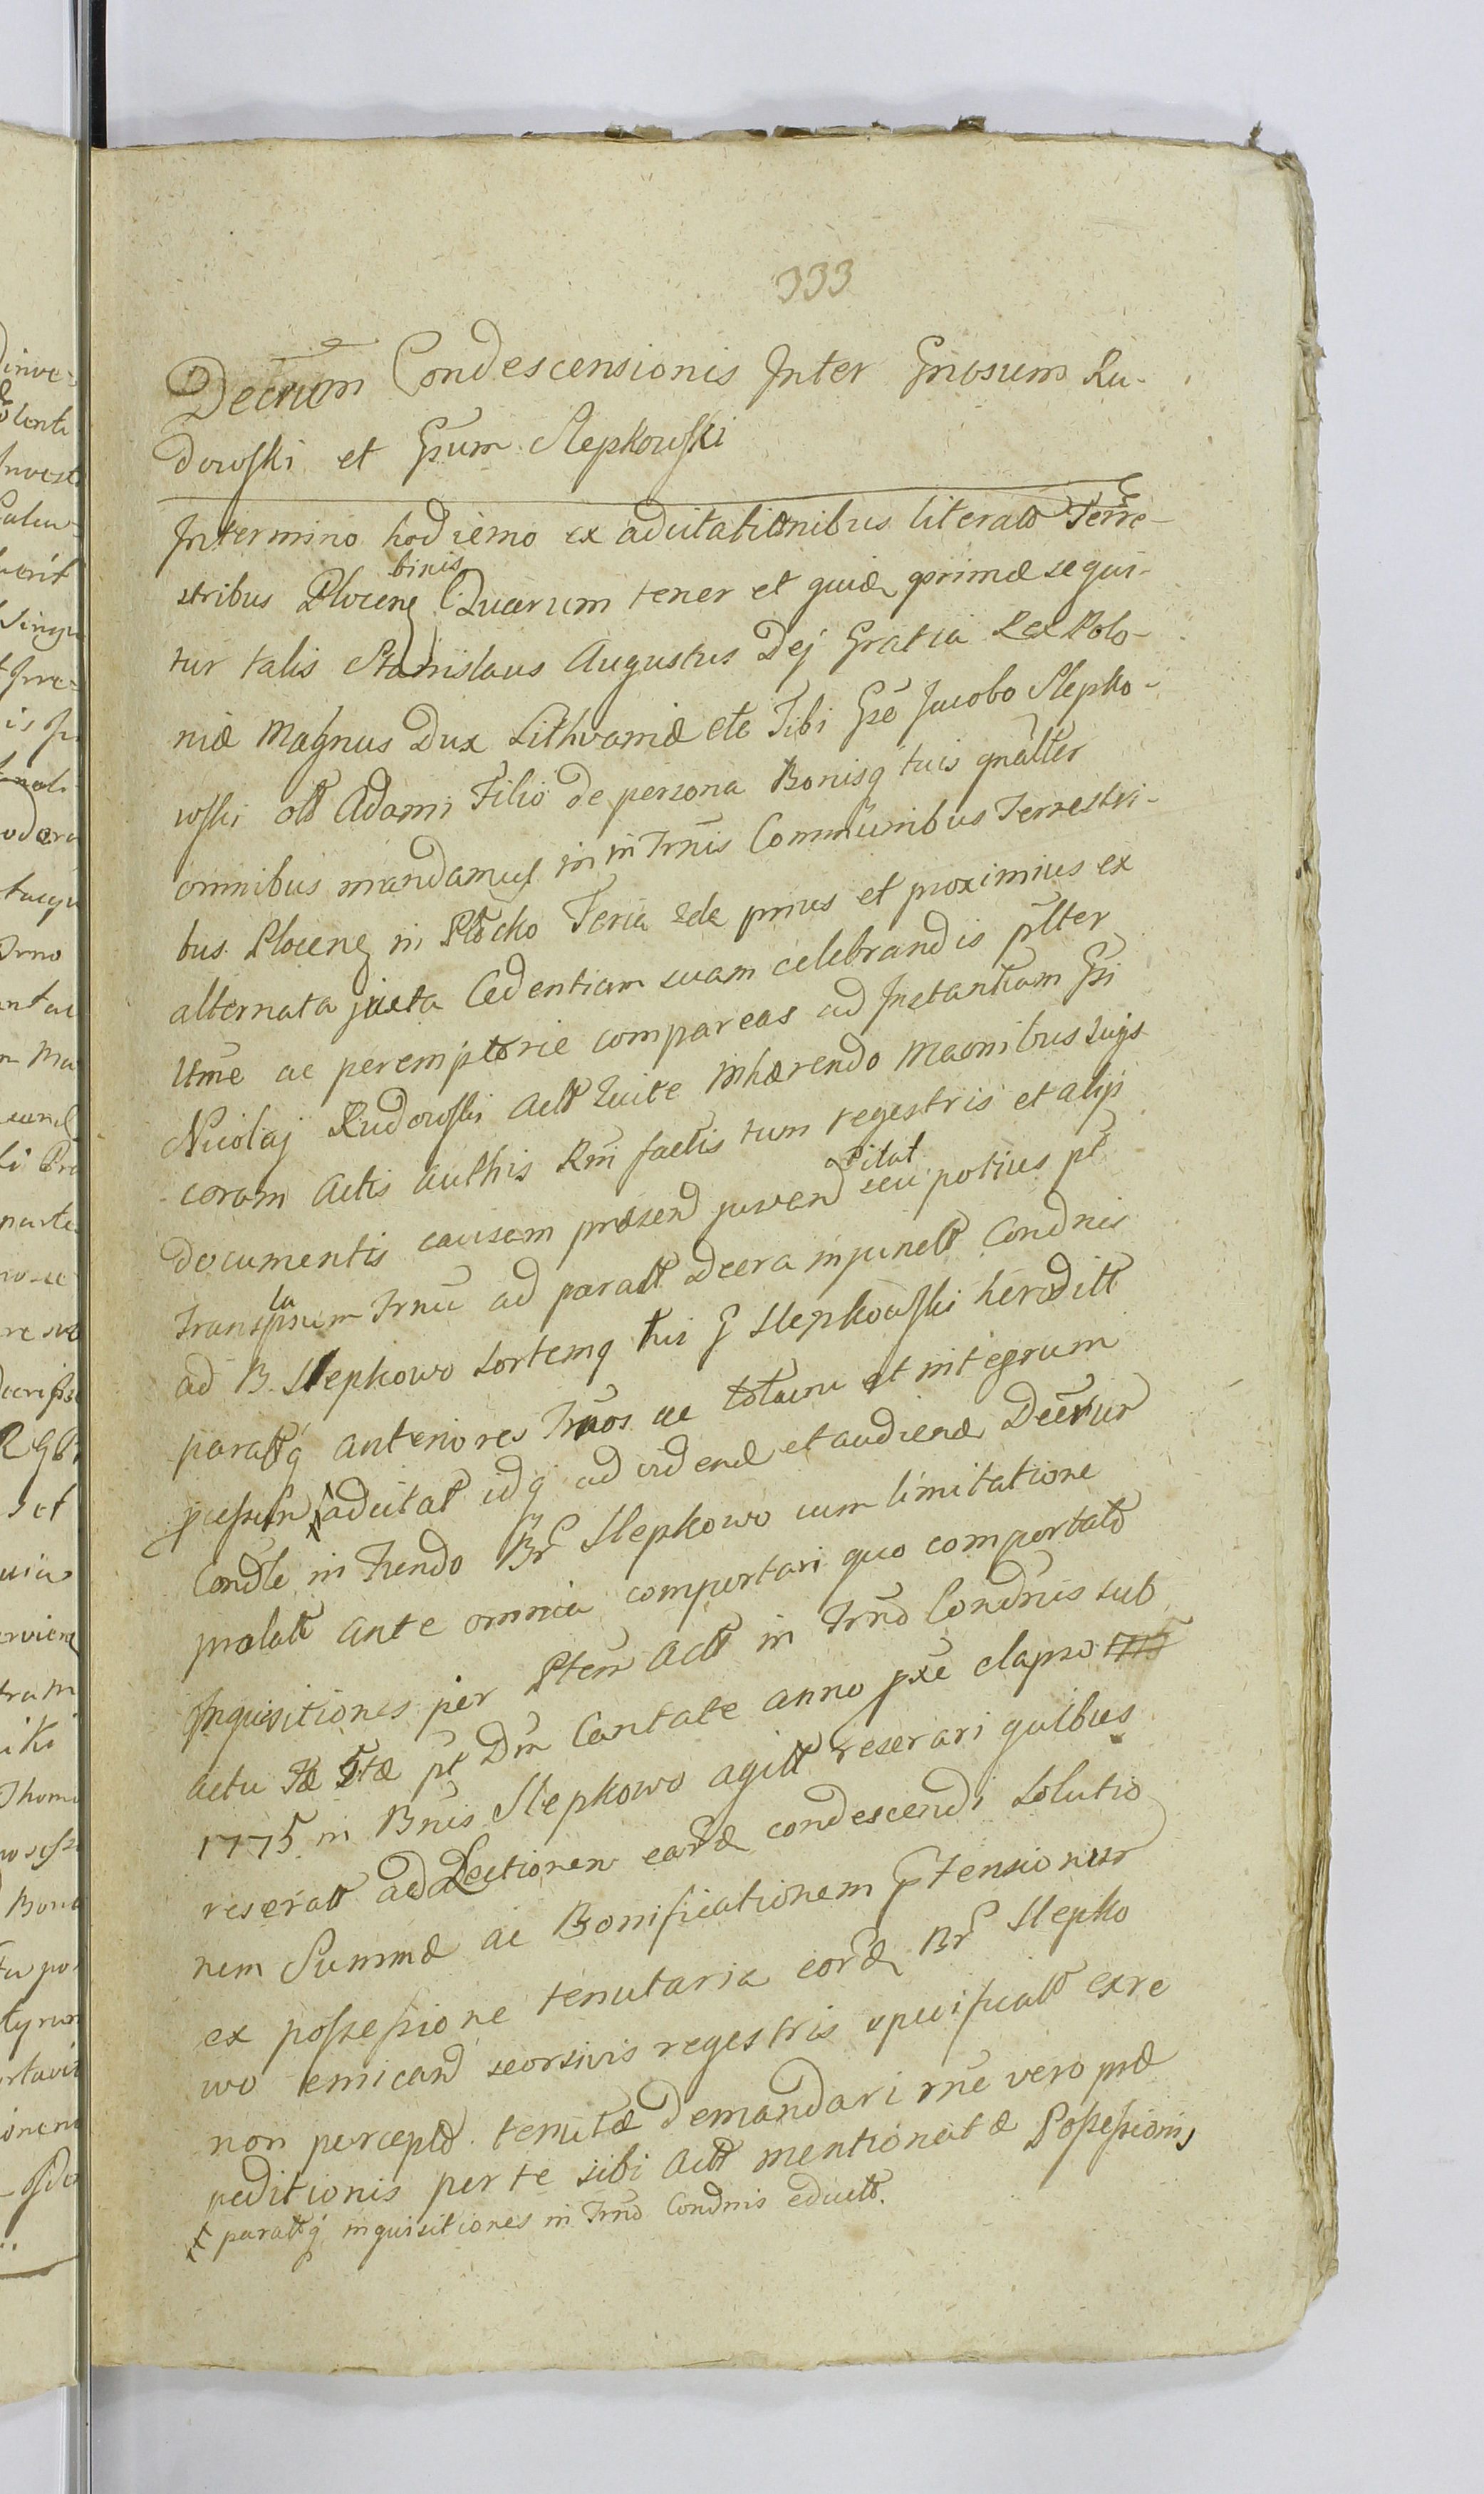 333
Decrum Condescensionis Inter Gnosum Ru-
dowski et Gsum Slepkowski
In termino hodierno ex adcitationibus literatt Terre-
stribus Plocen binis Quarum tenor et quidem primæ sequi-
tur talis Stanislaus Augustus Dej Gratia Rex Polo-
niæ Magnus Dux Lithvaniæ etc Tibi Gso Jacobo Slepko-
wski olt Adami Filio de persona Bonisq tuis gnalter
omnibus mandamus in in Trnis Communibus Terrestri-
bus Plocen in Plocko Feria 2da prius et proximius ex
alternata juxta Cedentiam suam celebrandis plter
ltme ac peremptorie compareas ad Instantiam Gsi
Nicolaj Rudowski Actt qui te inhærendo Maonibus suijs
coram Actis Authis Rm factis tum regestris et alijs
documentis causam præsend juvand citat seu potius pt
translapsum Trnu ad paratt Decra injunctt Condnis
ad B. Slepkowo sortemq tui G Slepkowski hæreditt
parattq anteriores Trnos ac totum et integrum
pcessum adcitat idq ad vidend et audiend Decrur
Condle in Trendo Br Slepkowo cum limitatione
prolatt ante omnia comportari quo comportato
Inquisitiones per Ptem Actt in Trno Condnis sub
actu Fæ 5tæ pt Dm Cantate anno pxe elapso
1775 in Bnis Slepkowo agitt reserari quibus
reseratt ad Lectionem eard condescendi Solutio
nem Summæ ac Bonificationem ptensionur
ex possessione tenutaria eord Br Slepko
wo emicand seorsivis regestris specificatt exre
non perceptæ tenutæ demandari rne vero præ
peditionis per te sibi Actt mentionatæ Possessionis
parattq inquisitiones in Trno Condnis eductt.